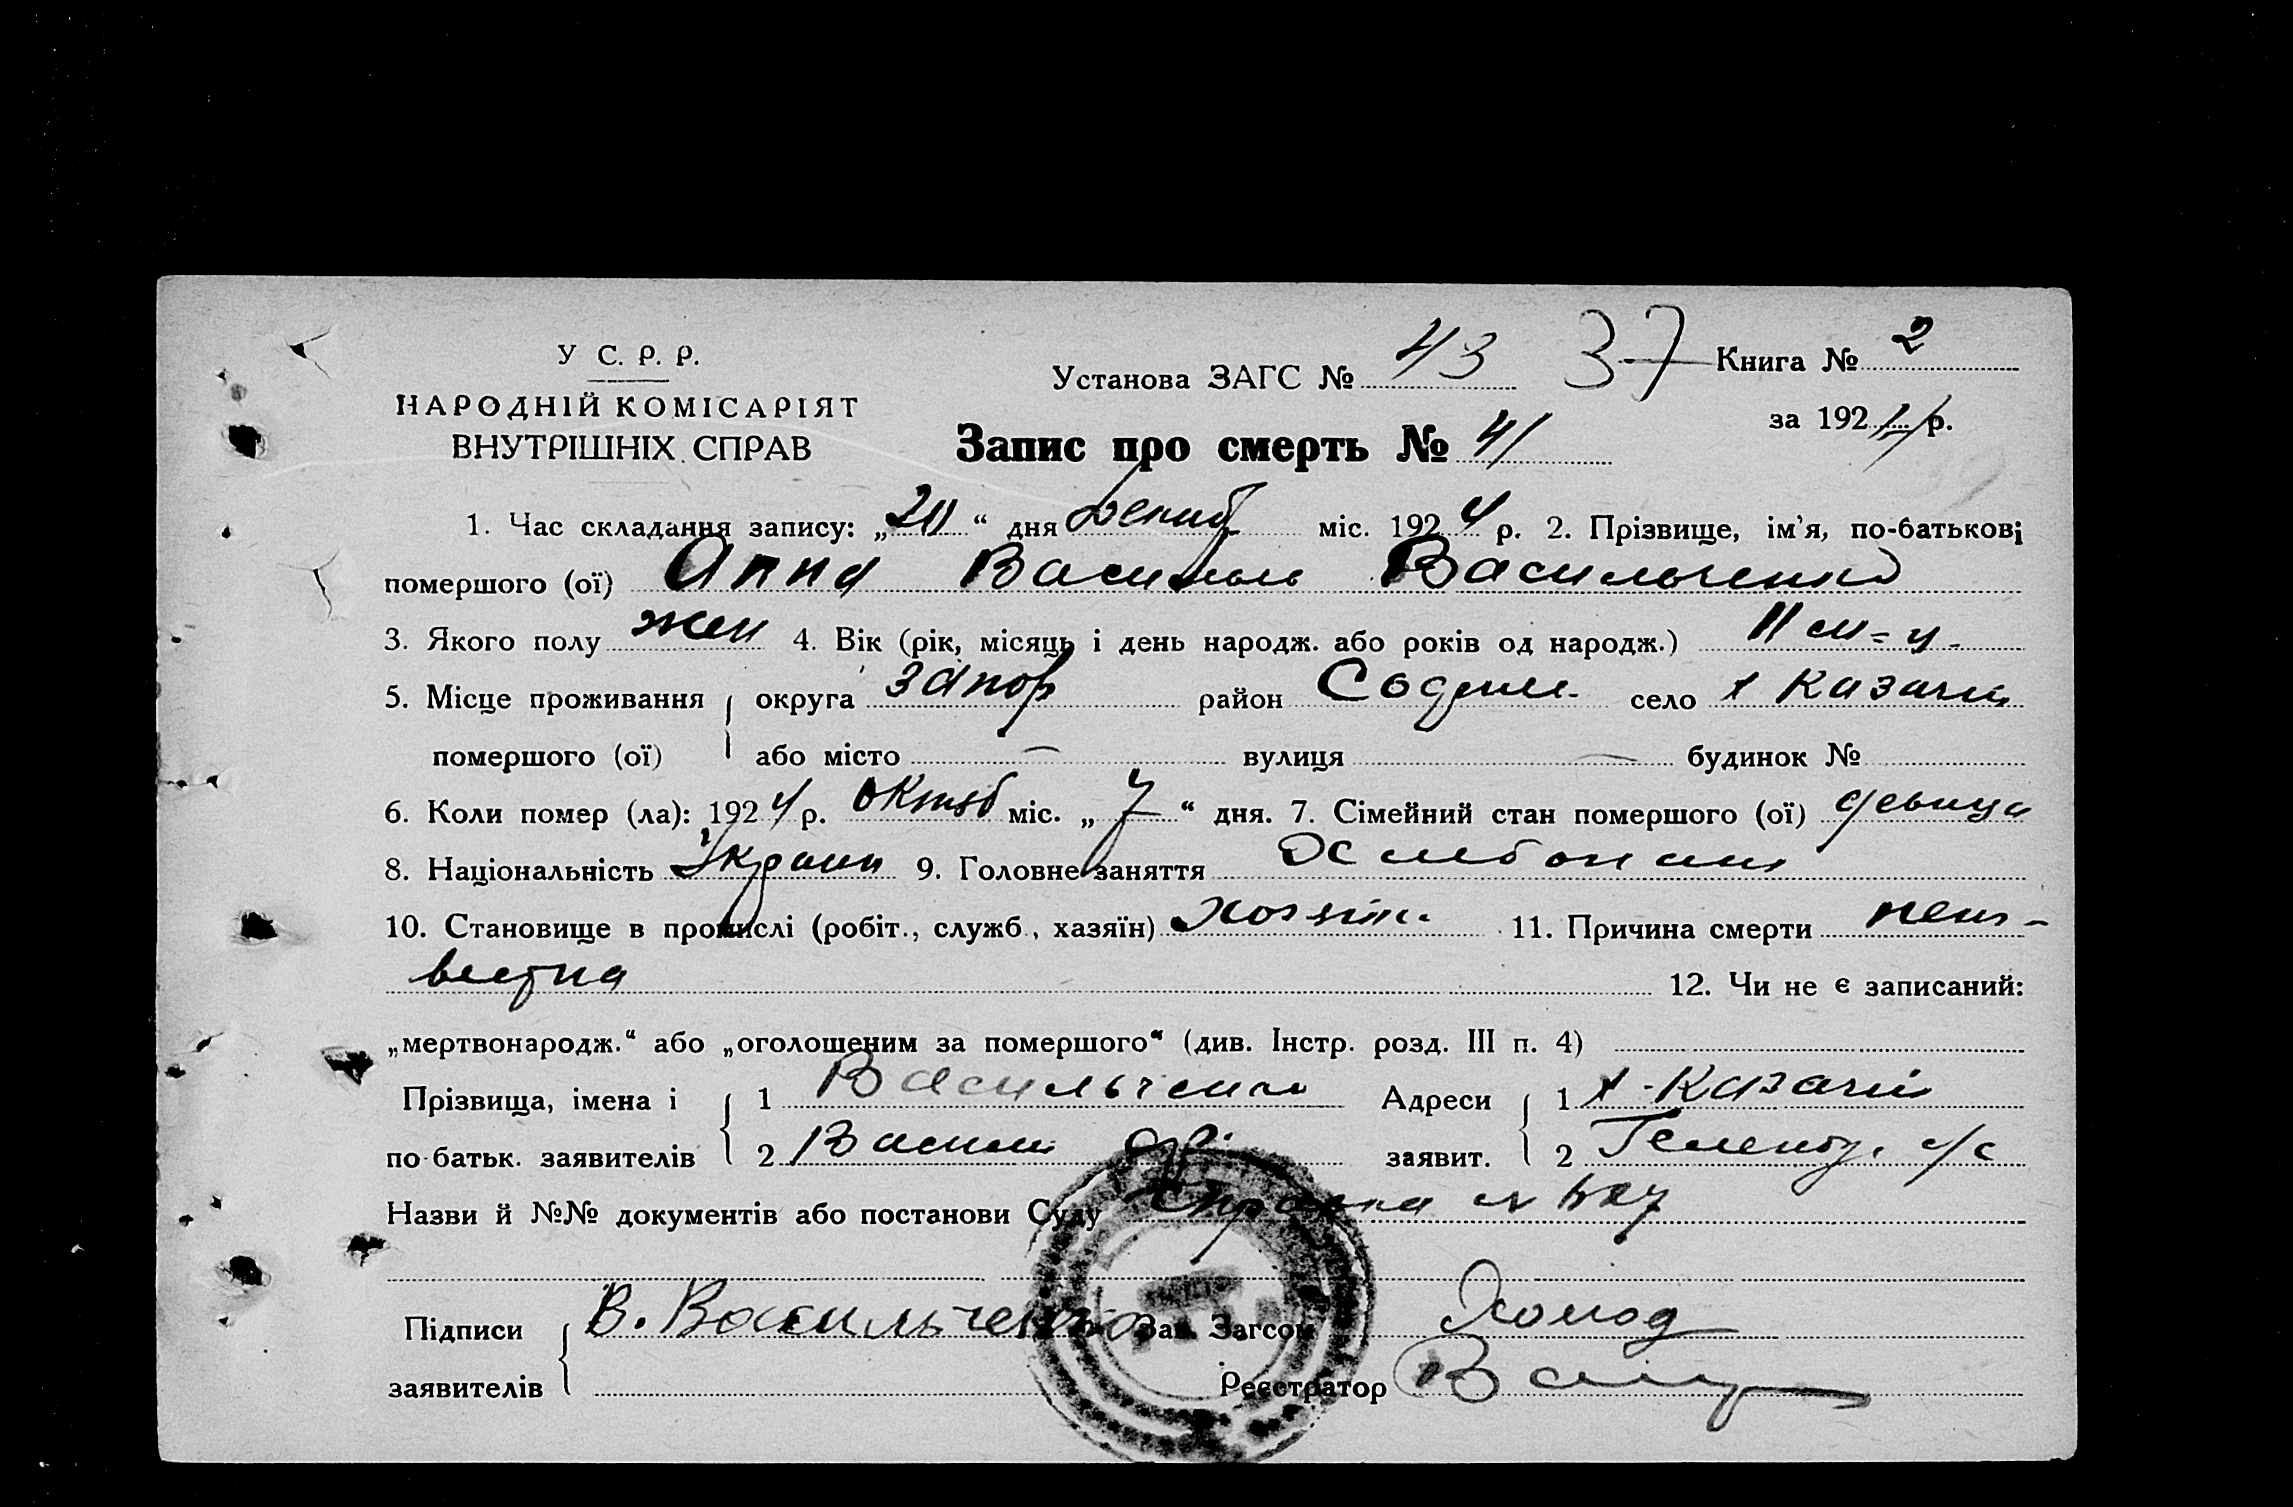 У С. Р. Р.
НАРОДНІЙ КОМІСАРІЯТ
ВНУТРІШНІХ СПРАВ
Установа ЗАГС № 43 37 Книга № 2
за 192 р.
Запис про смерть № 41
1. Час складання запису: „20“ дня Декаб міс. 1924 р. 2. Прізвище, ім'я, по-батькові
помершого (ої) Анна Василь Васильченко
3. Якого полу жен 4. Вік (рік, місяць і день народж. або років од народж.) 11 м-ц
5. Місце проживання округа Запор район село х Казачий
помершого (ої) або місто — вулиця — будинок №
6. Коли помер (ла): 1924 р. октяб міс. „7“ дня. 7. Сімейний стан помершого (ої) девица
8. Національність Украин 9. Головне заняття Хлебопаш
10. Становище в промислі (робіт., служб., хазяїн) хозяин 11. Причина смерти неиз-
вестна
12. Чи не є записаний:
„мертвонародж.“ або „оголошеним за помершого“ (див. Інстр. розд. III п. 4)
Прізвища, імена і 1 Васильченко Адреси 1 х-Казачий
по-батьк. заявителів 2 Васили заявит. 2 с/с
Назви й №№ документів або постанови Суду справка №
Підписи В. Васильченко Зав. Загсом Холод
заявителів Реєстратор